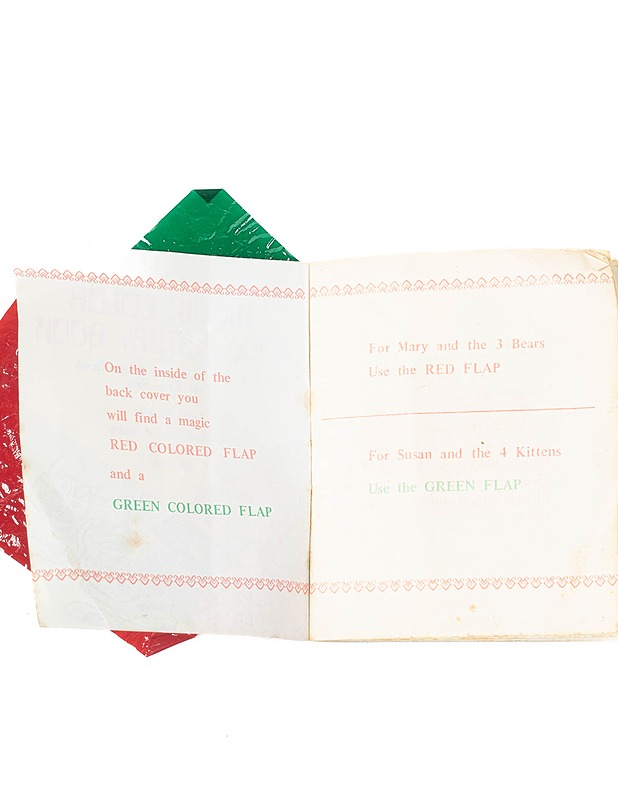 On the inside of the
back cover you
will find a magic
RED COLORED FLAP
and a
GREEN COLORED FLAP
For Mary and the 3 Bears
Use the RED FLAP
For Susan and the 4 Kittens
Use the GREEN FLAP